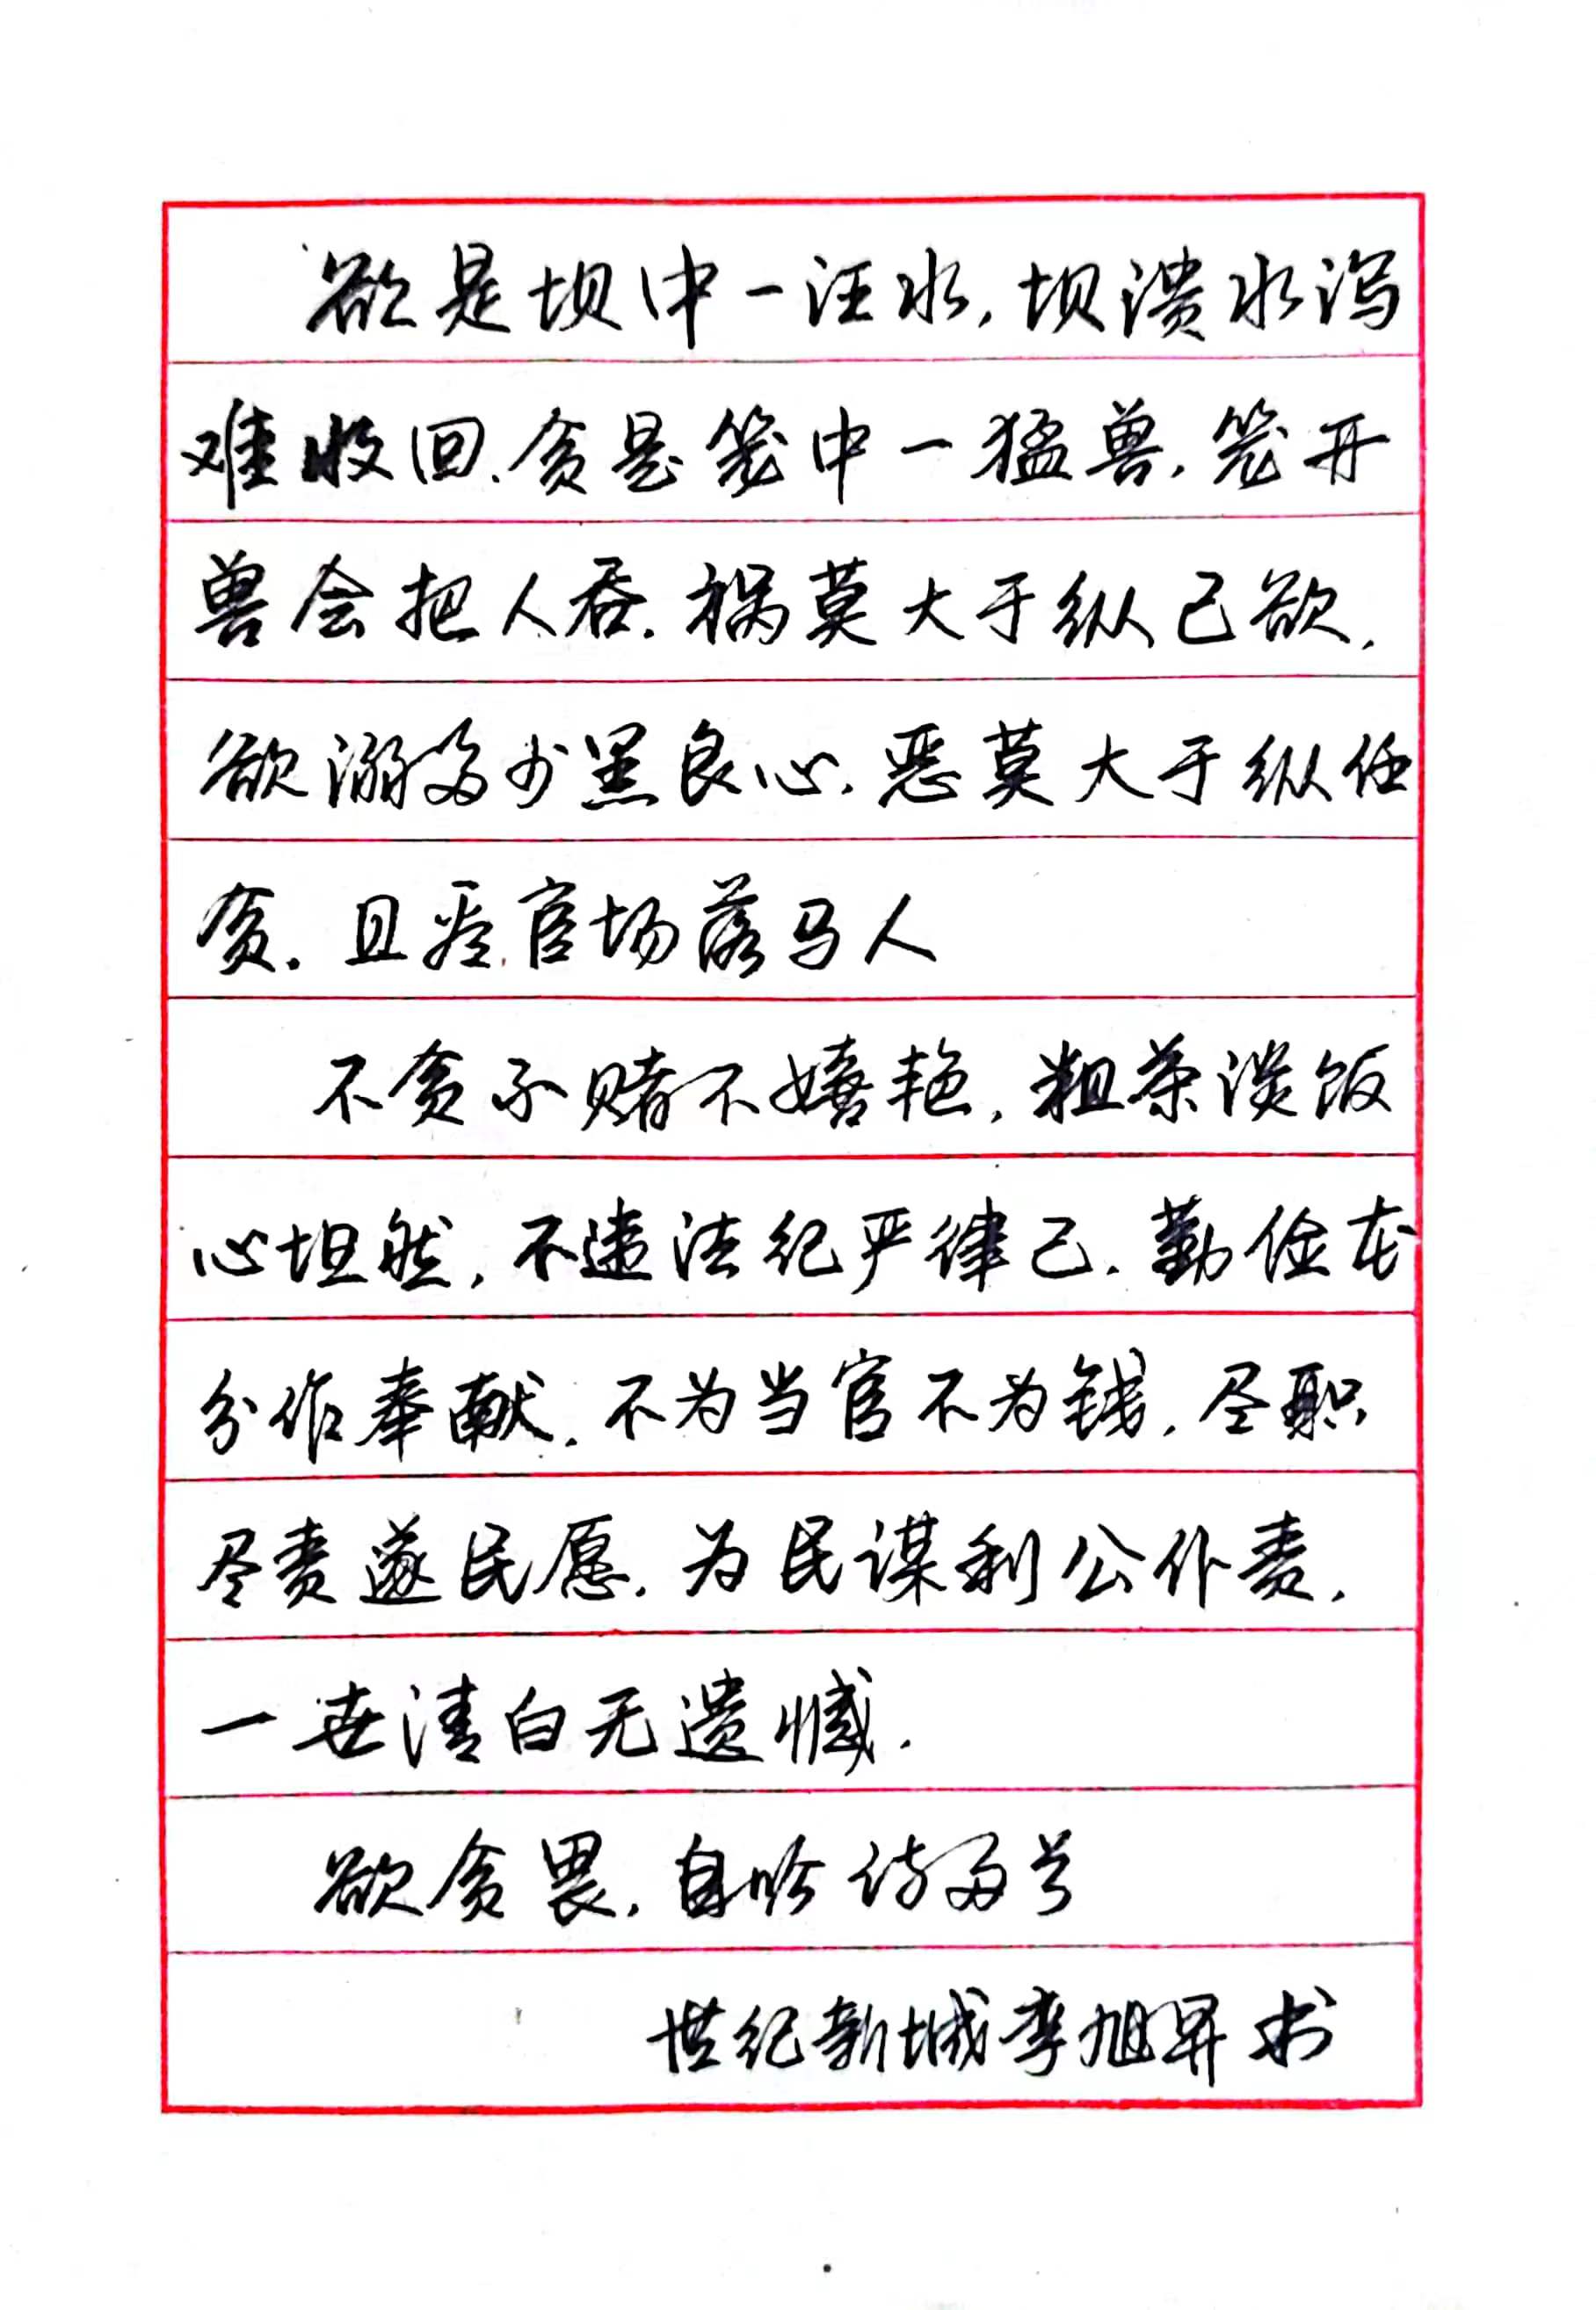 欲是坝中一汪水,坝溃水泻
难收回.贪是笼中一猛兽,笼开
兽会把人吞.祸莫大于纵己欲,
欲溺多少黑良心.恶莫大于纵任
贪.且看官场落马人
不贪不赌不嬉艳,粗茶淡饭
心坦然,不违法纪严律己.勤俭本
分作奉献.不为当官不为钱,尽职
尽责遂民愿.为民谋利公仆责,
一世清白无遗憾.
欲贪畏.自吟诗两首
世纪新城李旭昇书